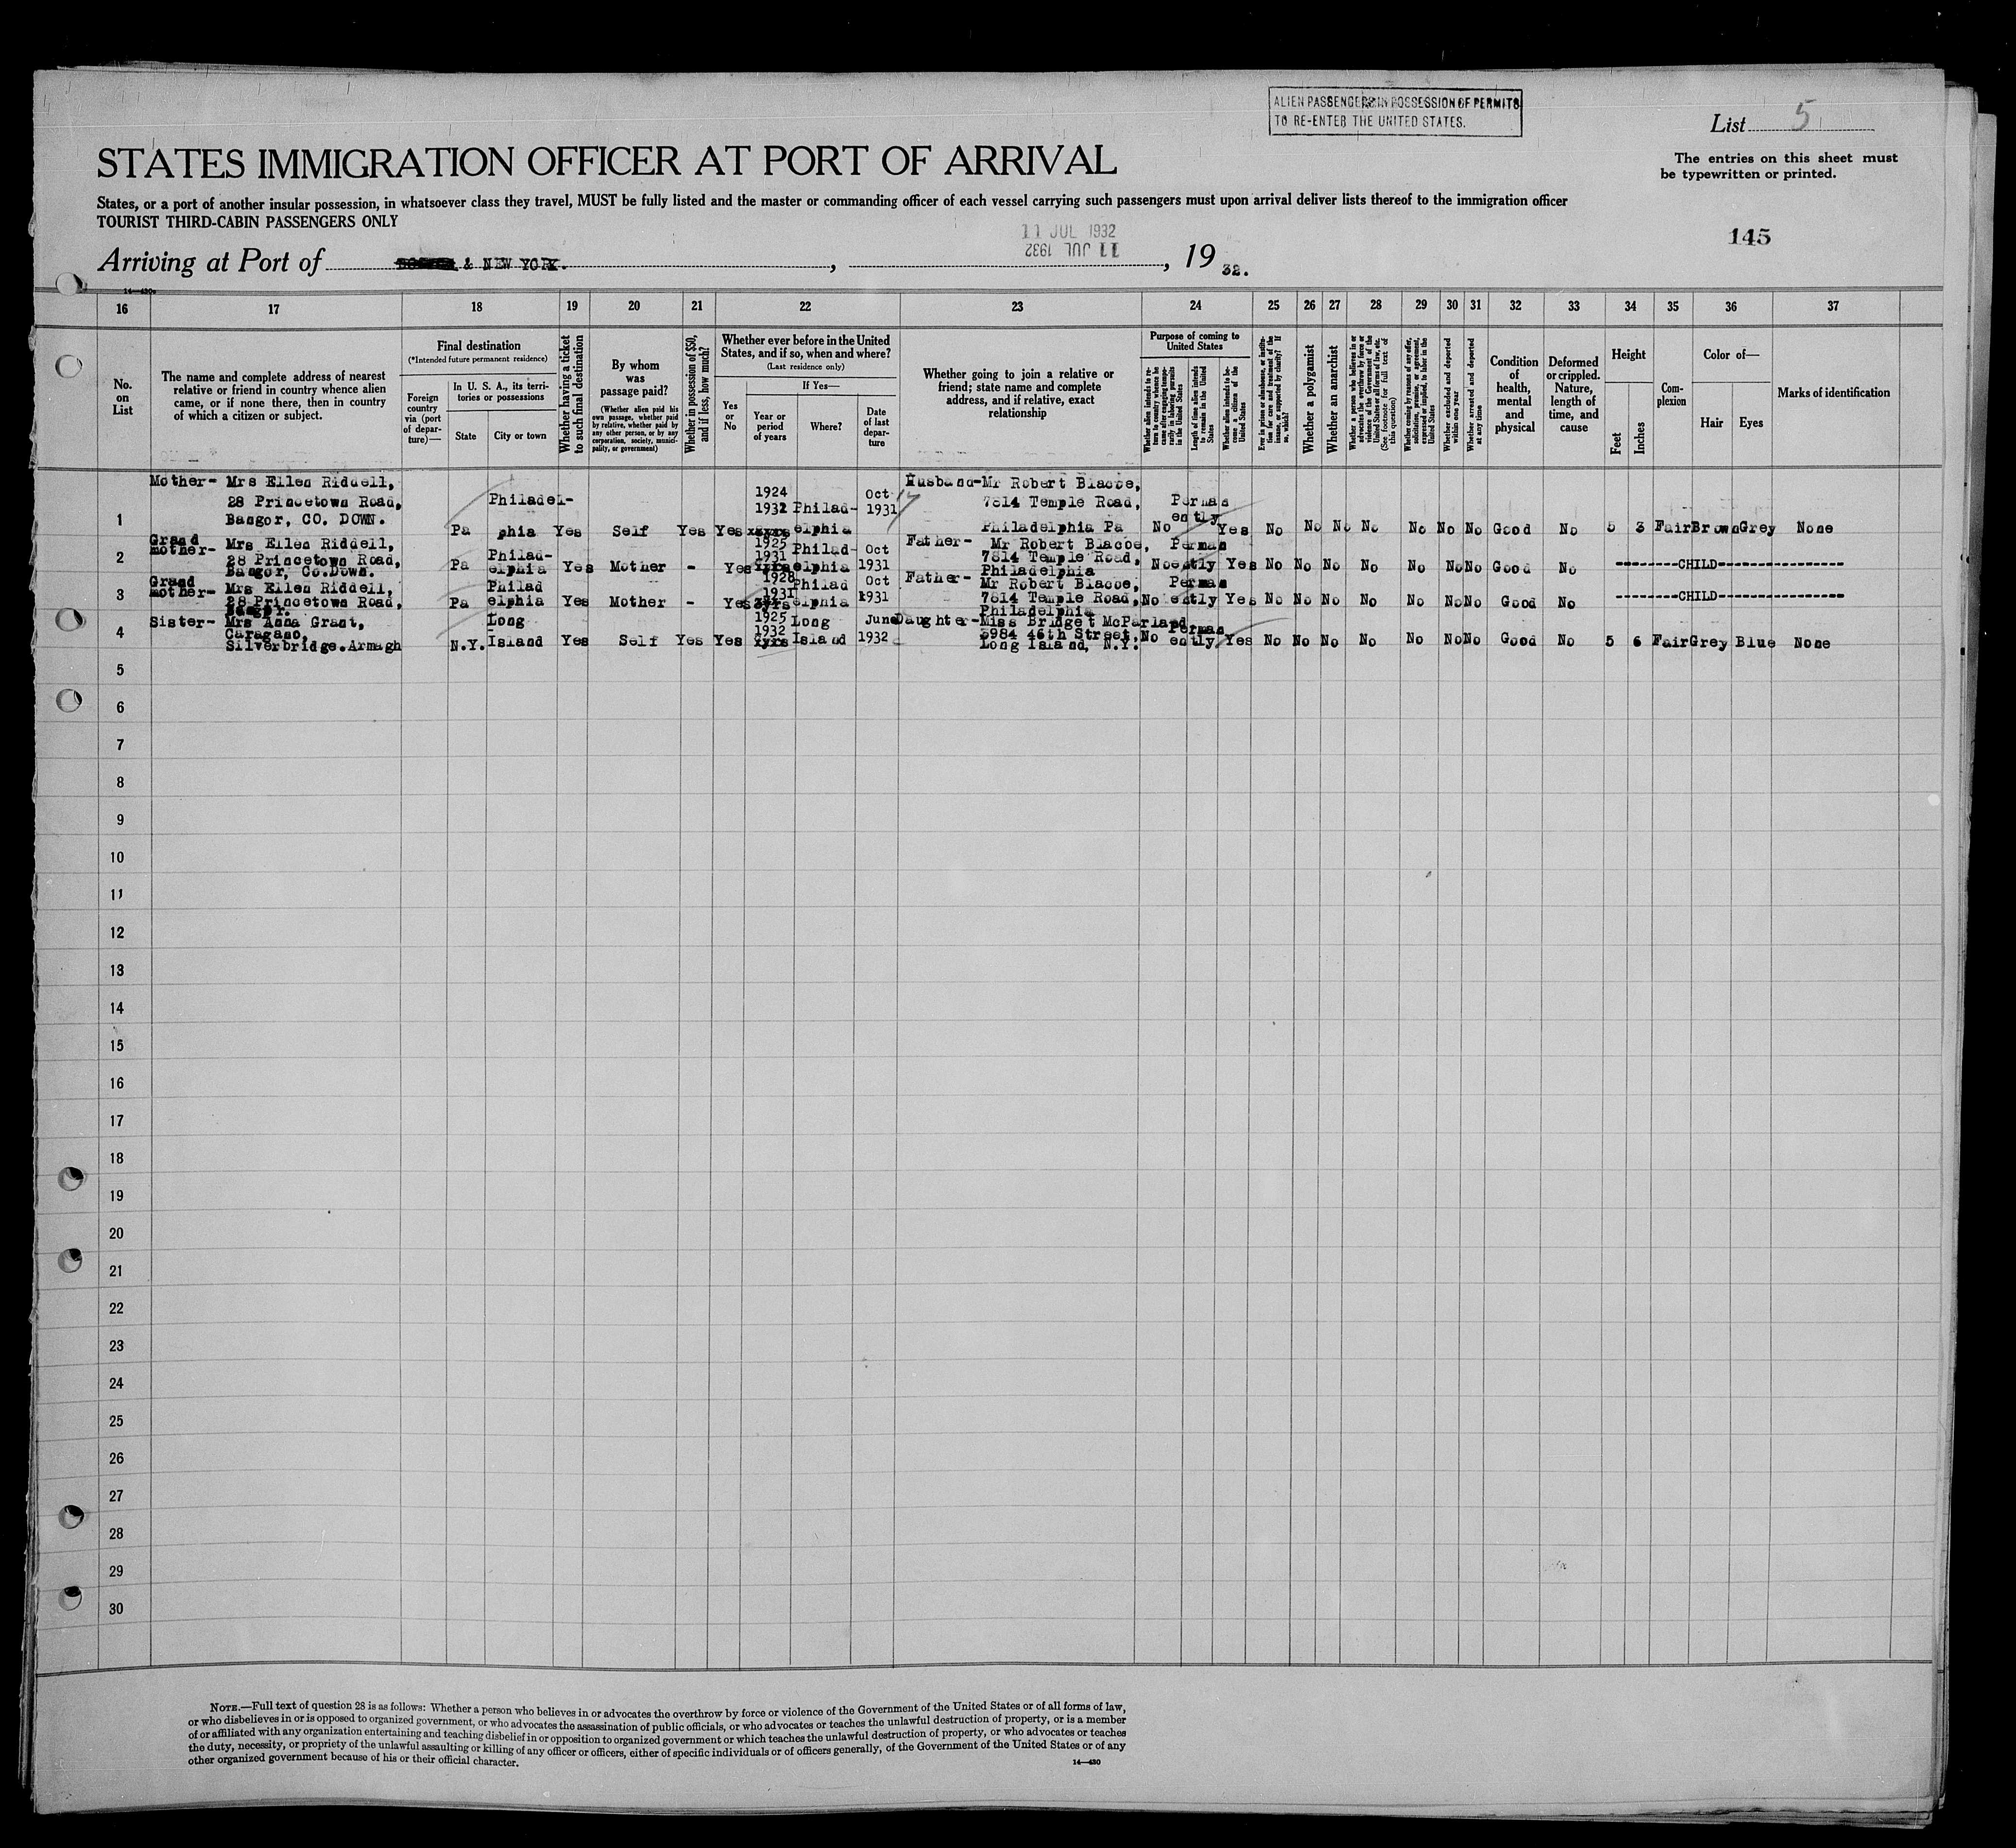 ALIEN PASSENGERS IN POSSESSION OF PERMITS
TO RE-ENTER THE UNITED STATES.
List 5
STATES IMMIGRATION OFFICER AT PORT OF ARRIVAL
The entries on this sheet must
be typewritten or printed.
States, or a port of another insular possession, in whatsoever class they travel, MUST be fully listed and the master or commanding officer of each vessel carrying such passengers must upon arrival deliver lists thereof to the immigration officer
TOURIST THIRD-CABIN PASSENGERS ONLY
145
11 JUL 1932
11 JUL 1932
Arriving at Port of & NEW YORK. , , 19 32.
14—430
16 17 18 19 20 21 22 23 24 25 26 27 28 29 30 31 32 33 34 35 36 37
No.
on
List
The name and complete address of nearest
relative or friend in country whence alien
came, or if none there, then in country
of which a citizen or subject.
Final destination
(*Intended future permanent residence)
Foreign
country
via (port
of depar-
ture)—
In U. S. A., its terri-
tories or possessions
State
City or town
Whether having a ticket
to such final destination
By whom
was
passage paid?
(Whether alien paid his
own passage, whether paid
by relative, whether paid by
any other person, or by any
corporation, society, munici-
pality, or government)
Whether in possession of $50,
and if less, how much?
Whether ever before in the United
States, and if so, when and where?
(Last residence only)
Yes
or
No
If Yes—
Year or
period
of years
Where?
Date
of last
depar-
ture
Whether going to join a relative or
friend; state name and complete
address, and if relative, exact
relationship
Purpose of coming to
United States
Whether alien intends to re-
turn to country whence he
came after engaging tempo-
rarily in laboring pursuits
in the United States
Length of time alien intends
to remain in the United
States
Whether alien intends to be-
come a citizen of the
United States
Ever in prison or almshouse, or institu-
tion for care and treatment of the
insane, or supported by charity? If
so, which?
Whether a polygamist
Whether an anarchist
Whether a person who believes in or
advocates the overthrow by force or
violence of the Government of the
United States or all forms of law, etc.
(See footnote for full text of
this question)
Whether coming by reasons of any offer,
solicitation, promise, or agreement,
expressed or implied, to labor in the
United States
Whether excluded and deported
within one year
Whether arrested and deported
at any time
Condition
of
health,
mental
and
physical
Deformed
or crippled.
Nature,
length of
time, and
cause
Height
Feet
Inches
Com-
plexion
Color of—
Hair
Eyes
Marks of identification
Mother- Mrs Ellen Riddell,
28 Princetown Road,
Bangor, CO. DOWN.
1 Pa Philadel-
phia Yes Self Yes Yes 1924
1932 Philad-
elphia Oct
1931 Husband-Mr Robert Blacoe,
7814 Temple Road,
Philadelphia Pa No Perman
ently Yes No No No No No No No Good No 5 3 Fair Brown Grey None
Grand
mother- Mrs Ellen Riddell,
28 Princetown Road,
Bangor, Co.Down.
2 Pa Philad-
elphia Yes Mother - Yes 1925
1931 Philad-
elphia Oct
1931 Father- Mr Robert Blacoe,
7814 Temple Road,
Philadelphia No Perman
ently Yes No No No No No No No Good No --------CHILD----------------
Grand
mother- Mrs Ellen Riddell,
28 Princetown Road,
Bangor.
3 Pa Philad
elphia Yes Mother - Yes 1928
1931 Philad
elphia Oct
1931 Father- Mr Robert Blacoe,
7814 Temple Road,
Philadelphia No Perman
ently Yes No No No No No No No Good No --------CHILD----------------
Sister- Mrs Anna Grant,
Caragano,
Silverbridge.Armagh
4 N.Y. Long
Island Yes Self Yes Yes 1925
1932 Long
Island June
1932 Daughter-Miss Bridget McParland
3984 46th Street,
Long Island, N.Y. No Perman
ently Yes No No No No No No No Good No 5 6 Fair Grey Blue None
5
6
7
8
9
10
11
12
13
14
15
16
17
18
19
20
21
22
23
24
25
26
27
28
29
30
NOTE.—Full text of question 28 is as follows: Whether a person who believes in or advocates the overthrow by force or violence of the Government of the United States or of all forms of law,
or who disbelieves in or is opposed to organized government, or who advocates the assassination of public officials, or who advocates or teaches the unlawful destruction of property, or is a member
of or affiliated with any organization entertaining and teaching disbelief in or opposition to organized government or which teaches the unlawful destruction of property, or who advocates or teaches
the duty, necessity, or propriety of the unlawful assaulting or killing of any officer or officers, either of specific individuals or of officers generally, of the Government of the United States or of any
other organized government because of his or their official character.
14—430